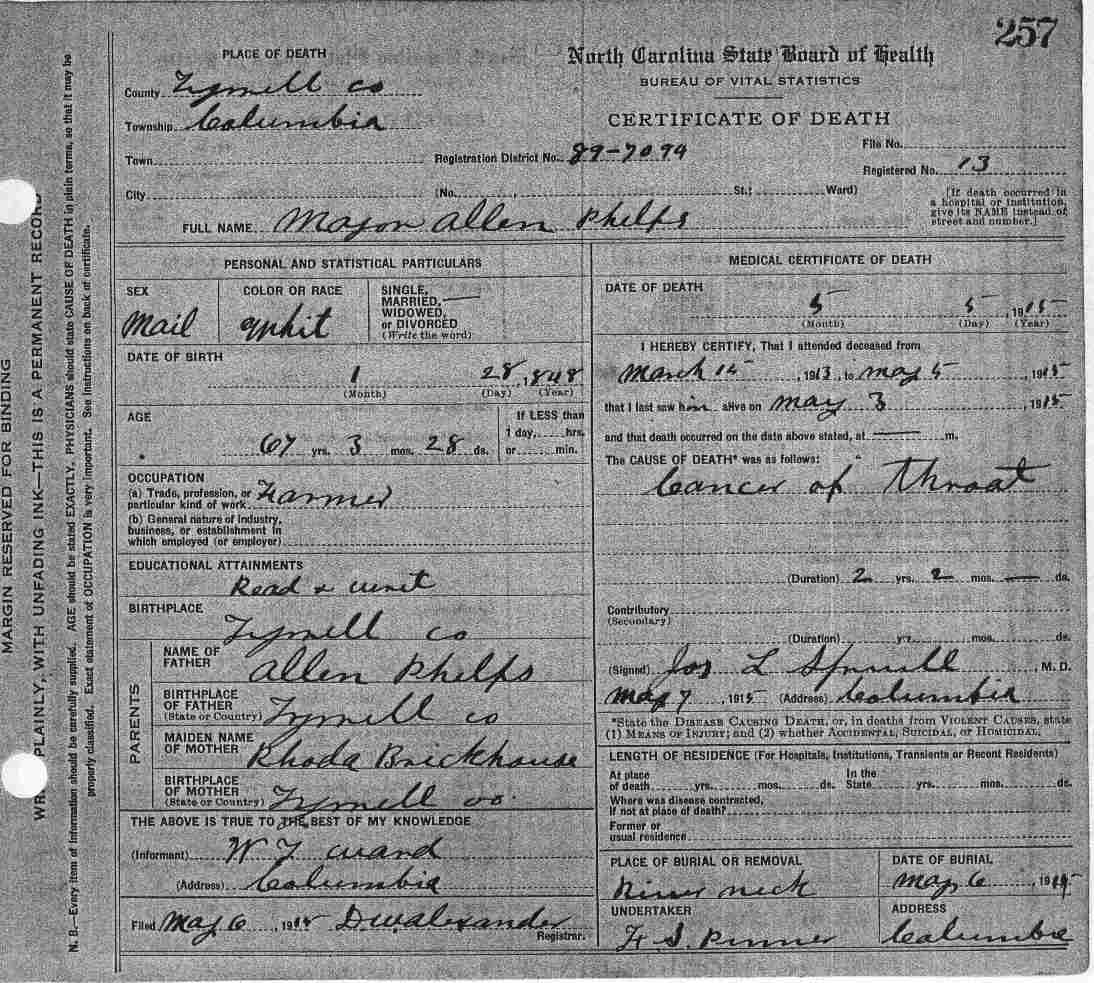 257
PLACE OF DEATH
North Carolina State Board of Health
BUREAU OF VITAL STATISTICS
CERTIFICATE OF DEATH
County Tyrrell co
Township Columbia
Town
Registration District No. 89-7094
File No.
Registered No. 13
City (No. , St.; Ward)
[If death occurred in
a hospital or institution,
give its NAME instead of
street and number.]
FULL NAME Major Allen Phelps
PERSONAL AND STATISTICAL PARTICULARS
SEX
Mail
COLOR OR RACE
Whit
SINGLE,
MARRIED,
WIDOWED,
or DIVORCED
(Write the word)
DATE OF BIRTH
1 28, 1848
(Month) (Day) (Year)
AGE
67 yrs. 3 mos. 28 ds.
If LESS than
1 day, hrs.
or min.
OCCUPATION
(a) Trade, profession, or
particular kind of work Farmer
(b) General nature of industry,
business, or establishment in
which employed (or employer)
EDUCATIONAL ATTAINMENTS
Read & writ
BIRTHPLACE
Tyrrell co
PARENTS
NAME OF
FATHER
Allen Phelps
BIRTHPLACE
OF FATHER
(State or Country) Tyrrell co
MAIDEN NAME
OF MOTHER
Rhoda Brickhouse
BIRTHPLACE
OF MOTHER
(State or Country) Tyrrell co.
THE ABOVE IS TRUE TO THE BEST OF MY KNOWLEDGE
(Informant) W T Ward
(Address) Columbia
Filed May 6 1915 D W Alexander
Registrar.
MEDICAL CERTIFICATE OF DEATH
DATE OF DEATH
5 5, 1915
(Month) (Day) (Year)
I HEREBY CERTIFY, That I attended deceased from
March 15, 1913, to may 5, 1915
that I last saw him alive on may 3, 1915
and that death occurred on the date above stated, at — m.
The CAUSE OF DEATH* was as follows:
Cancer of Throat
(Duration) 2 yrs. 2 mos. — ds.
Contributory
(Secondary)
(Duration) yrs. mos. ds.
(Signed) Jos L Spruill, M. D.
may 7, 1915 (Address) Columbia
*State the DISEASE CAUSING DEATH, or, in deaths from VIOLENT CAUSES, state
(1) MEANS OF INJURY; and (2) whether ACCIDENTAL, SUICIDAL, or HOMICIDAL.
LENGTH OF RESIDENCE (For Hospitals, Institutions, Transients or Recent Residents)
At place
of death yrs. mos. ds.
In the
State yrs. mos. ds.
Where was disease contracted,
if not at place of death?
Former or
usual residence
PLACE OF BURIAL OR REMOVAL
River neck
DATE OF BURIAL
may 6, 1915
UNDERTAKER
H S Pinner
ADDRESS
Columbia
MARGIN RESERVED FOR BINDING
PLAINLY, WITH UNFADING INK—THIS IS A PERMANENT RECORD
N. B.—Every item of information should be carefully supplied. AGE should be stated EXACTLY. PHYSICIANS should state CAUSE OF DEATH in plain terms, so that it may be
properly classified. Exact statement of OCCUPATION is very important. See instructions on back of certificate.